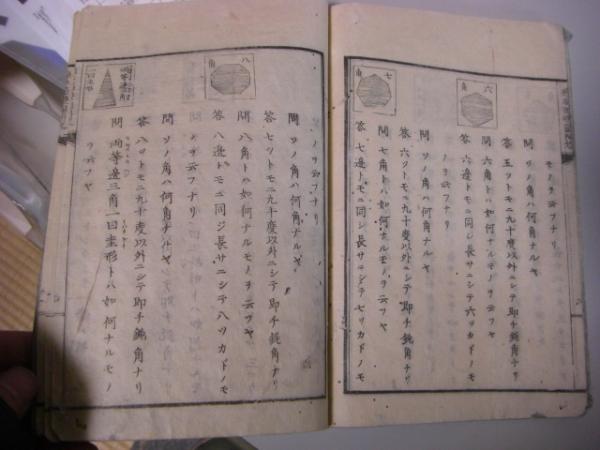 モノヲ云フナリ
問 ソノ角ハ何角ナルヤ
答 五ツトモニ九十度以外ニシテ即チ鈍角ナリ
問 六角トハ如何ナルモノヲ云フヤ
答 六邊トモニ同シ長サニシテ六ツカドノモ
ノヲ云フナリ
六角
問 ソノ角ハ何角ナルヤ
答 六ツトモニ九十度以外ニシテ即チ鈍角ナリ
問 七角トハ如何ナルモノヲ云フヤ
答 七邊トモニ同シ長サニシテ七ツカドノモ
七角
ノヲ云フナリ
問 ソノ角ハ何角ナルヤ
答 七ツトモニ九十度以外ニシテ即チ鈍角ナリ
問 八角トハ如何ナルモノヲ云フヤ
答 八邊トモニ同ジ長サニシテ八ツカドノモ
ノヲ云フナリ
八角
問 ソノ角ハ何角ナルヤ
答 八ツトモニ九十度以外ニシテ即チ鈍角ナリ
問 両等邊三角一曰圭形トハ如何ナルモノ
ヲ云フヤ